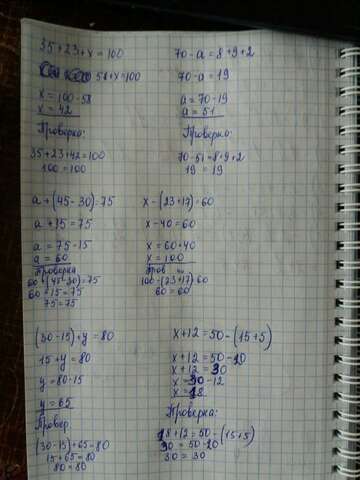 35+23+x=100
58+x=100
x=100-58
x=42
Проверка:
35+23+42=100
100=100
70-a=8+9+2
70-a=19
a=70-19
a=51
Проверка:
70-51=8+9+2
19=19
a+(45-30)=75
a+15=75
a=75-15
a=60
Проверка
60+(45-30)=75
60+15=75
75=75
x-(23+17)=60
x-40=60
x=60+40
x=100
Пров
100-(23+17)=60
60=60
(30-15)+y=80
15+y=80
y=80-15
y=65
Провер
(30-15)+65=80
15+65=80
80=80
x+12=50-(15+5)
x+12=50-20
x+12=30
x=30-12
x=18
Проверка:
18+12=50-(15+5)
30=50-20
30=30